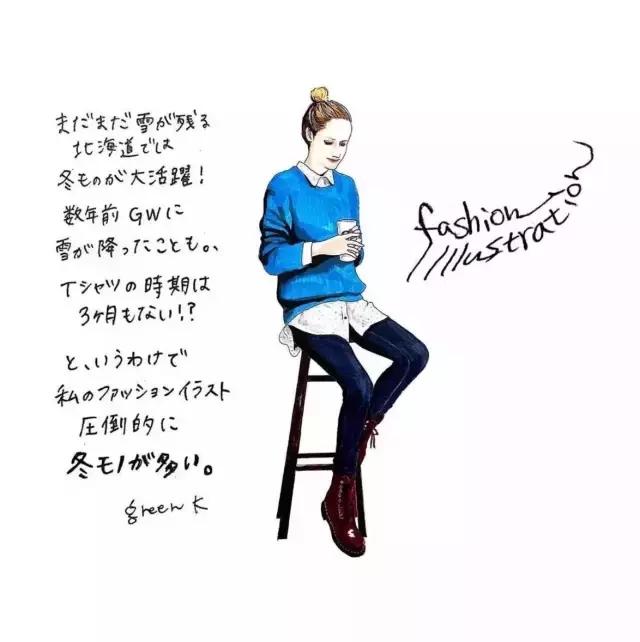 まだまだ雪が残る
北海道では
冬ものが大活躍！
数年前GWに
雪が降ったことも。。
Tシャツの時期は
3ヶ月もない!?
と、いうわけで
私のファッションイラスト
圧倒的に
冬モノが多い。
green K
fashion
illustration